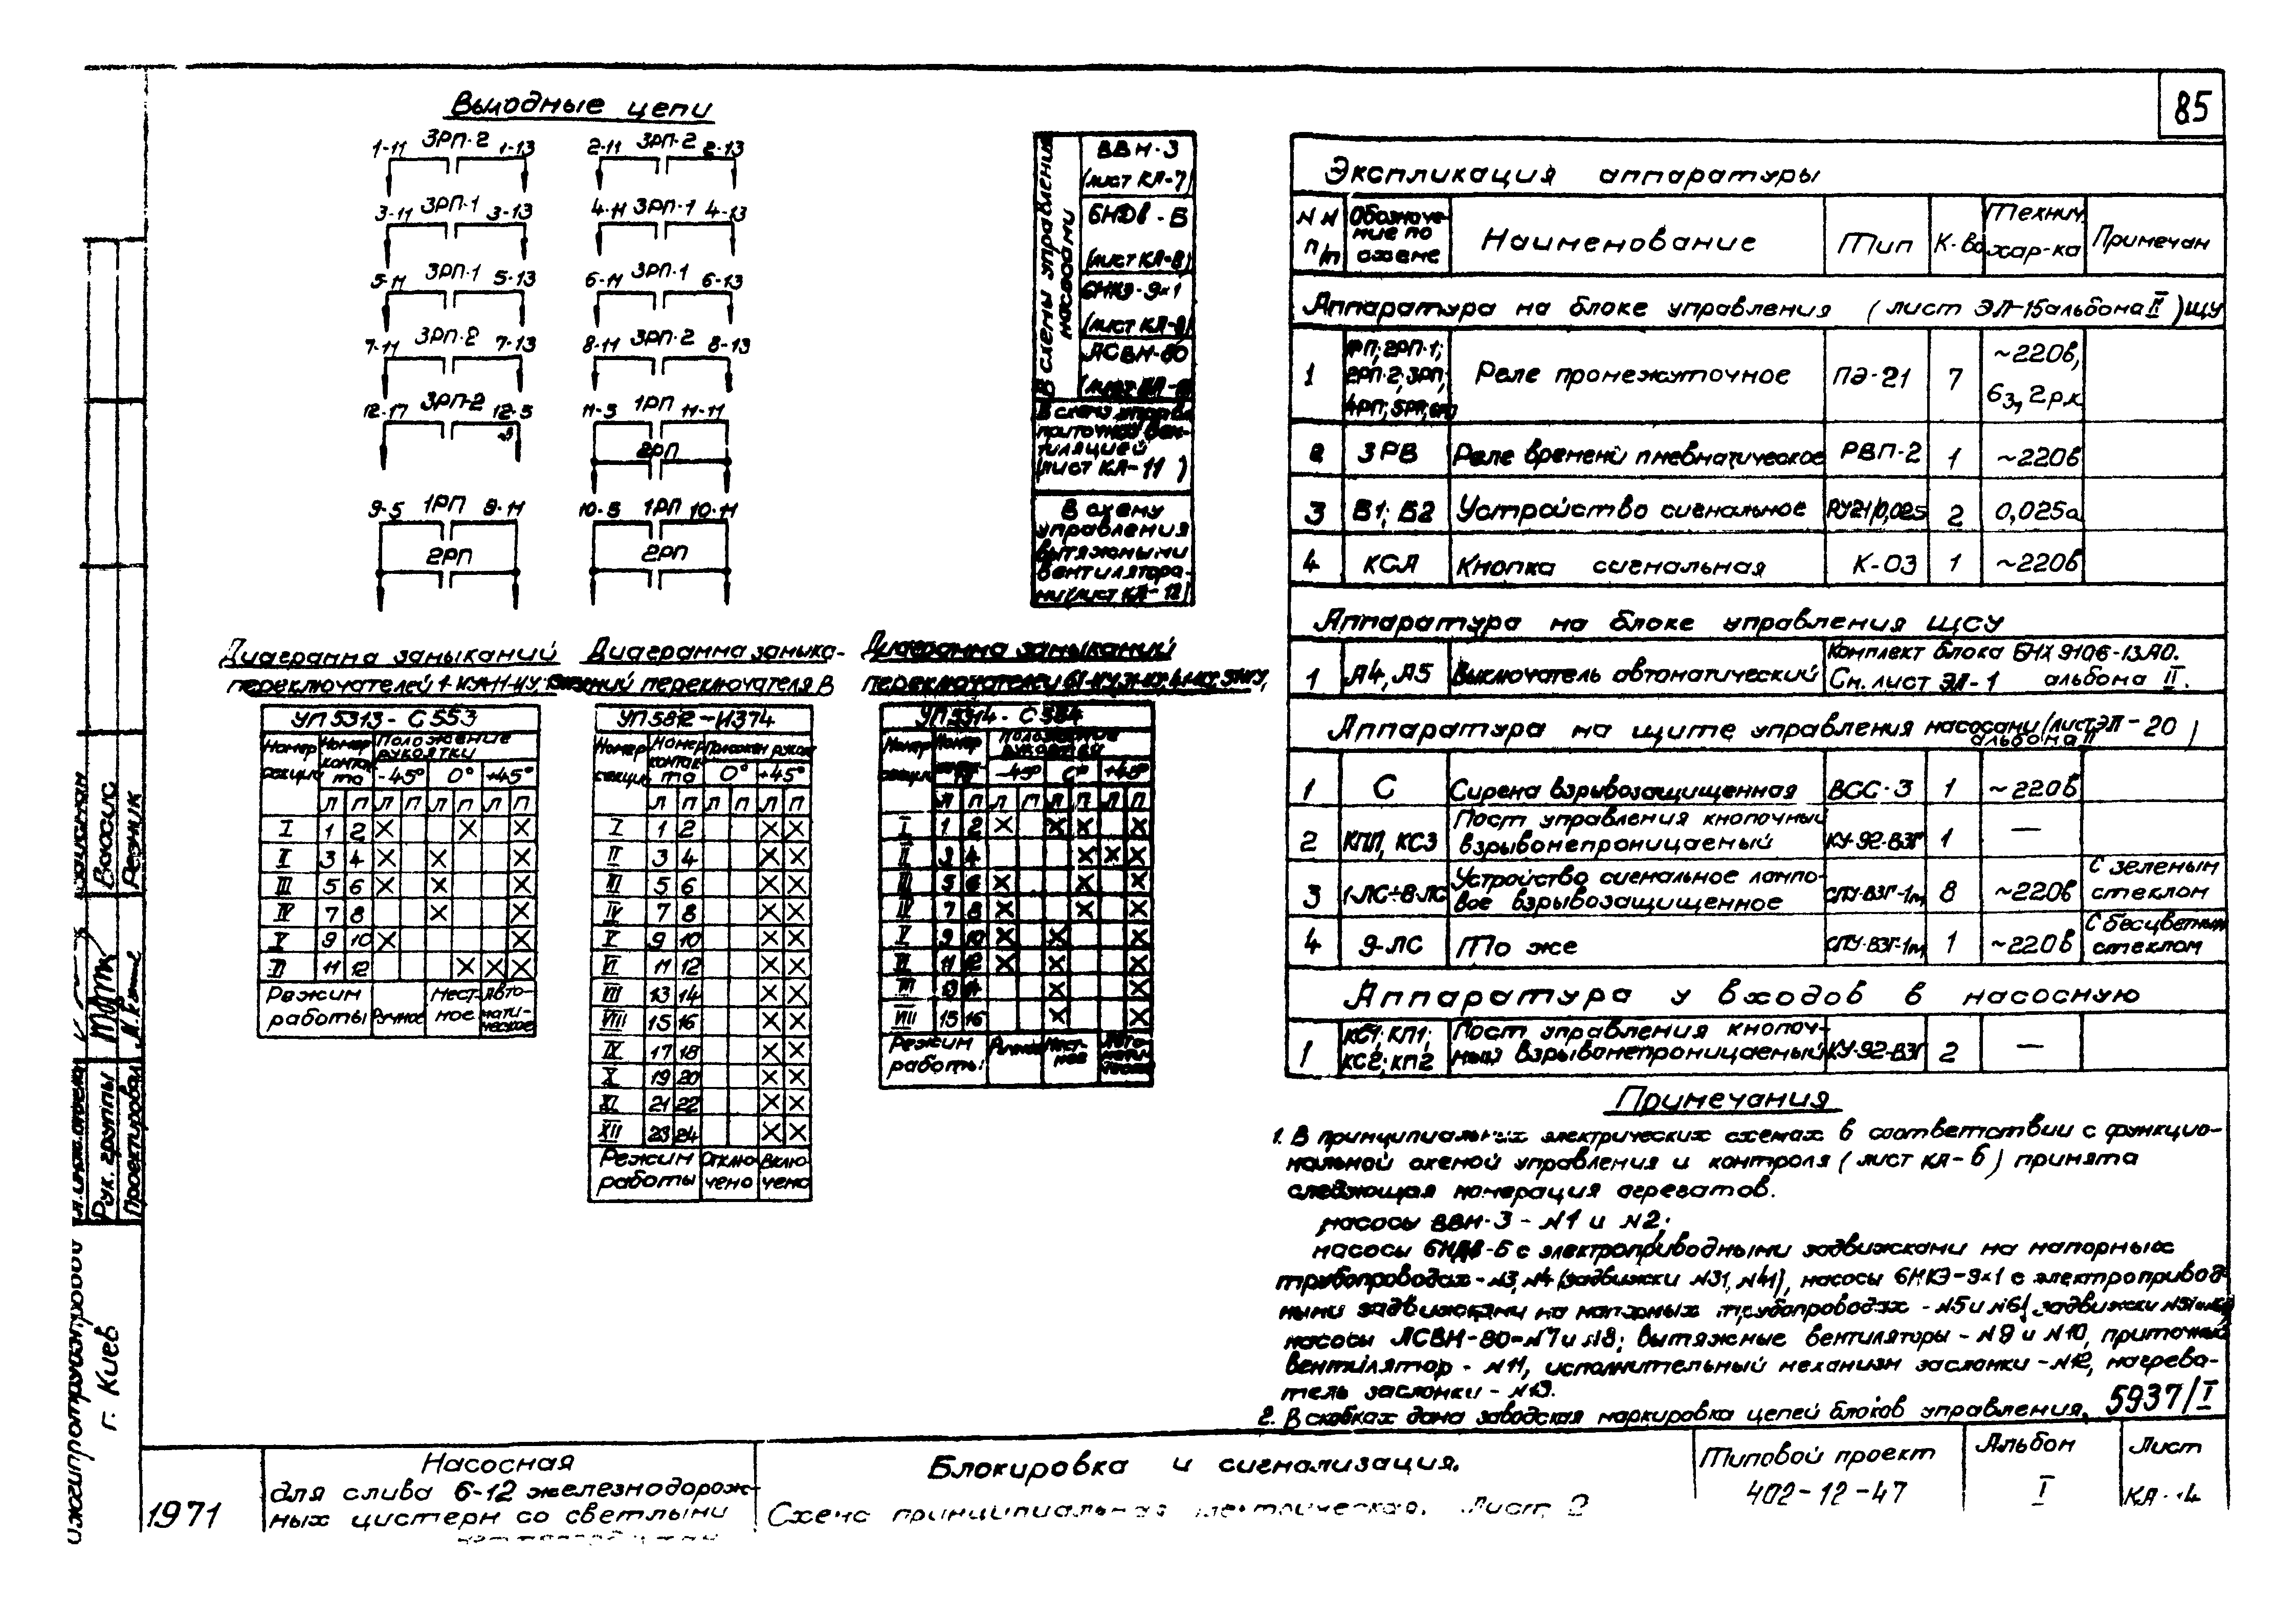 85
Выходные цепи
1-11 3РП-2 1-13
2-11 3РП-2 2-13
3-11 3РП-1 3-13
4-11 3РП-1 4-13
5-11 3РП-1 5-13
6-11 3РП-1 6-13
7-11 3РП-2 7-13
8-11 3РП-2 8-13
12-17 3РП-2 12-5
11-5 1РП 11-11
2РП
9-5 1РП 9-11
10-5 1РП 10-11
2РП
2РП
В схемы управления насосами
ВВН-3
(лист КА-7)
6НДв-Б
(лист КА-8)
6НКЭ-9×1
АСВН-80
В схему управл.
приточной вен-
тиляцией
(лист КА-11)
В схему
управления
вытяжными
вентилятора-
ми (лист КА-12)
Диаграмма замыканий
переключателей
УП 5313-С553
Номер секции
Номер контакта
Положение рукоятки
-45° 0° +45°
Л П Л П Л П Л П
I 1 2 × × ×
II 3 4 × × ×
III 5 6 × × ×
IV 7 8 × ×
V 9 10 × ×
VI 11 12 × × ×
Режим работы
Ручное
Местное
Автоматическое
Диаграмма замыка-
ний переключателя В
УП 5812-И374
Номер секции
Номер контакта
Положен. рукоят
0° +45°
Л П Л П Л П
I 1 2 × ×
II 3 4 × ×
III 5 6 × ×
IV 7 8 × ×
V 9 10 × ×
VI 11 12 × ×
VII 13 14 × ×
VIII 15 16 × ×
IX 17 18 × ×
X 19 20 × ×
XI 21 22 × ×
XII 23 24 × ×
Режим работы
Отключено
Включено
Диаграмма замыканий
переключателей
УП 5314-С
Номер секции
Положение рукоятки
-45° 0° +45°
Л П Л П Л П Л П
I 1 2 × × × ×
II 3 4 × × ×
III 5 6 × × ×
IV 7 8 × × ×
V 9 10 × × ×
VI 11 12 × × ×
VII 13 14 × ×
VIII 15 16 × ×
Режим работы
Ручное
Местное
Экспликация аппаратуры
NN п/п
Обозначение по схеме
Наименование
Тип
К-во
Технич. хар-ка
Примечан
Аппаратура на блоке управления (лист ЭЛ-15 альбома II) ЩУ
1 1РП; 2РП-1; 2РП-2; 3РП; 4РП; 5РП; Реле промежуточное ПЭ-21 7 ~220в, 6з, 2р.к
2 3РВ Реле времени пневматическое РВП-2 1 ~220в
3 В1; В2 Устройство сигнальное РУ21/0,025 2 0,025а
4 КСА Кнопка сигнальная К-03 1 ~220в
Аппаратура на блоке управления ЩСУ
1 А4, А5 Выключатель автоматический Комплект блока БНХ 9106-13А0. См. лист ЭЛ-1 альбома II.
Аппаратура на щите управления насосами (лист ЭЛ-20)
альбома II
1 С Сирена взрывозащищенная ВСС-3 1 ~220в
2 КПП, КСЗ Пост управления кнопочный взрывонепроницаемый КУ-92-ВЗГ 1 —
3 1-ЛС÷8-ЛС Устройство сигнальное лампо-вое взрывозащищенное СПУ-ВЗГ-1м 8 ~220в С зеленым стеклом
4 9-ЛС То же СПУ-ВЗГ-1м 1 ~220в С бесцветным стеклом
Аппаратура у входов в насосную
1 КС1; КП1; КС2; КП2 Пост управления кнопоч-ный взрывонепроницаемый КУ-92-ВЗГ 2 —
Примечания
1. В принципиальных электрических схемах в соответствии с функцио-
нальной схемой управления и контроля (лист КА-6) принята
следующая нумерация агрегатов.
насосы ВВН-3 - N1 и N2;
насосы 6НДв-Б с электроприводными задвижками на напорных
трубопроводах - N3, N4 (задвижки N31, N41), насосы 6НКЭ-9×1 с электропривод-
ными задвижками на напорных трубопроводах - N5 и N6 (задвижки
насосы АСВН-80 - N7 и N8; вытяжные вентиляторы - N9 и N10, приточный
вентилятор - N11, исполнительный механизм заслонки - N12, нагрева-
тель заслонки - N13.
2. В скобках дана заводская маркировка цепей блоков управления.
5937/I
1971
Насосная
для слива 6-12 железнодорож-
ных цистерн со светлыми
Блокировка и сигнализация.
Схема принципиальная электрическая. Лист 2
Типовой проект
402-12-47
Альбом
I
Лист
Рук. группы
Проектировал
Резник
г. Киев